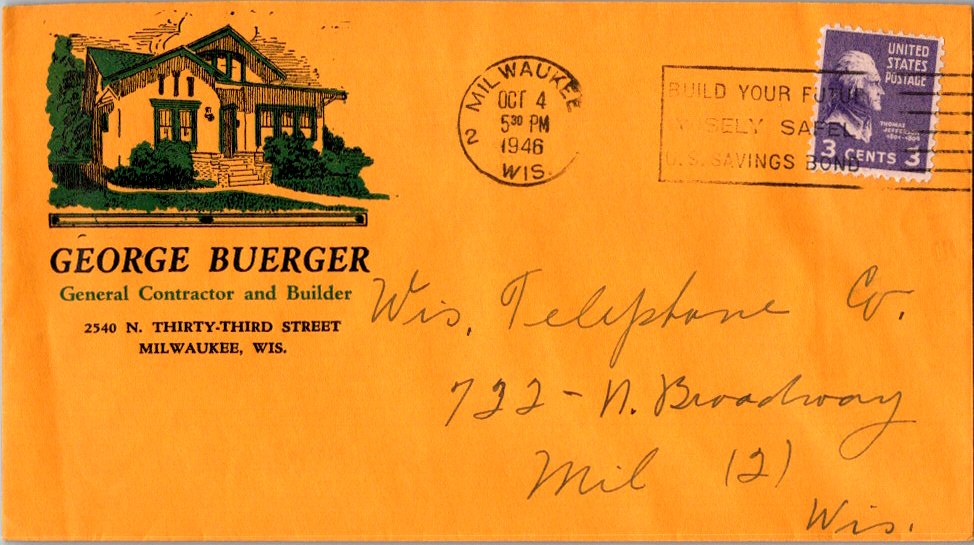 GEORGE BUERGER
General Contractor and Builder
2540 N. THIRTY-THIRD STREET
MILWAUKEE, WIS.
MILWAUKEE
2
OCT 4
5 30 PM
1946
WIS.
BUILD YOUR FUTURE
WISELY SAFELY
U.S. SAVINGS BOND
UNITED
STATES
POSTAGE
THOMAS
JEFFERSON
1801-1809
3 CENTS 3
Wis. Telephone Co.
722 - N. Broadway
Mil (2)
Wis.